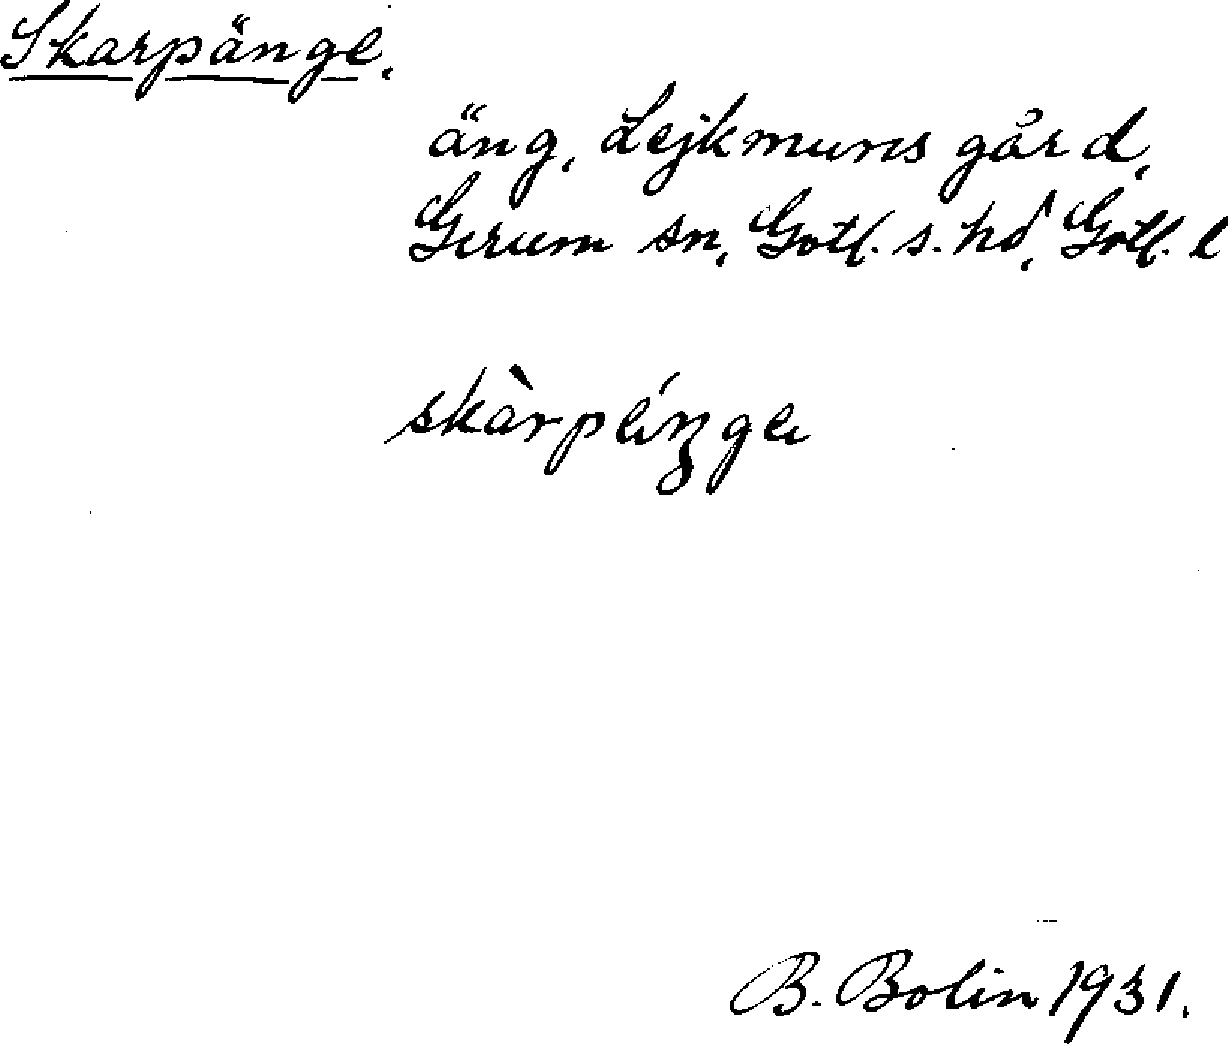 Skarpänge.
äng, Lejkmuns gård,
Gerum sn, Gotl. s. hd, Gotl. l
skàrpéŋge
B. Bolin 1931.